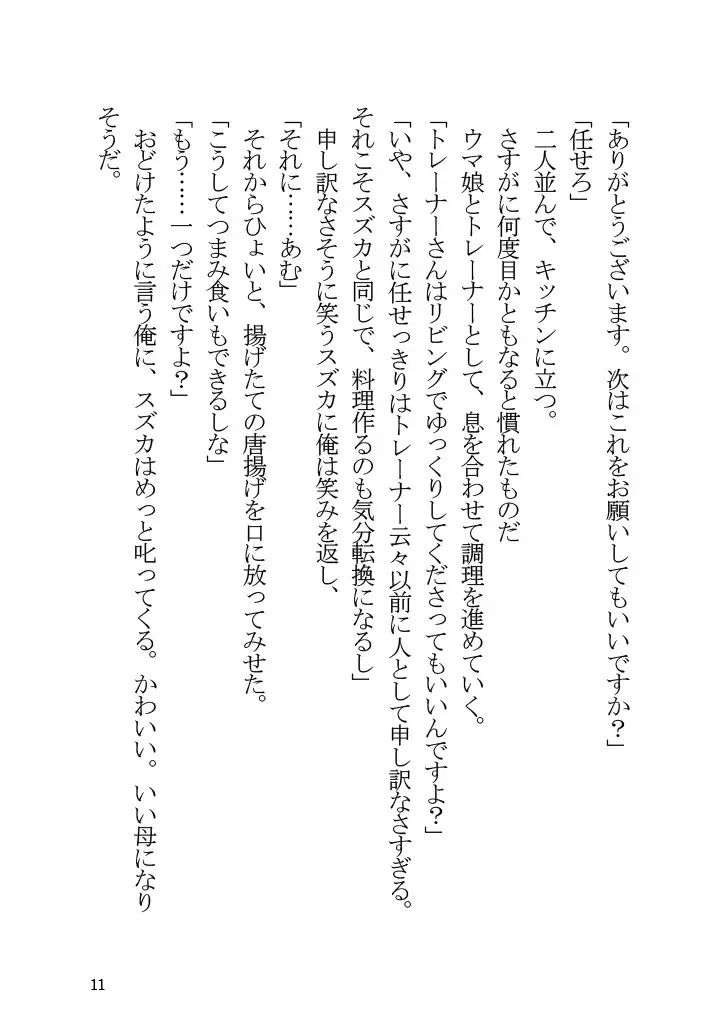 「ありがとうございます。次はこれをお願いしてもいいですか？」
「任せろ」
　二人並んで、キッチンに立つ。
　さすがに何度目かともなると慣れたものだ
　ウマ娘とトレーナーとして、息を合わせて調理を進めていく。
「トレーナーさんはリビングでゆっくりしてくださってもいいんですよ？」
「いや、さすがに任せっきりはトレーナー云々以前に人として申し訳なさすぎる。
それこそスズカと同じで、料理作るのも気分転換になるし」
　申し訳なさそうに笑うスズカに俺は笑みを返し、
「それに……あむ」
　それからひょいと、揚げたての唐揚げを口に放ってみせた。
「こうしてつまみ食いもできるしな」
「もう……一つだけですよ？」
　おどけたように言う俺に、スズカはめっと叱ってくる。かわいい。いい母になり
そうだ。
11